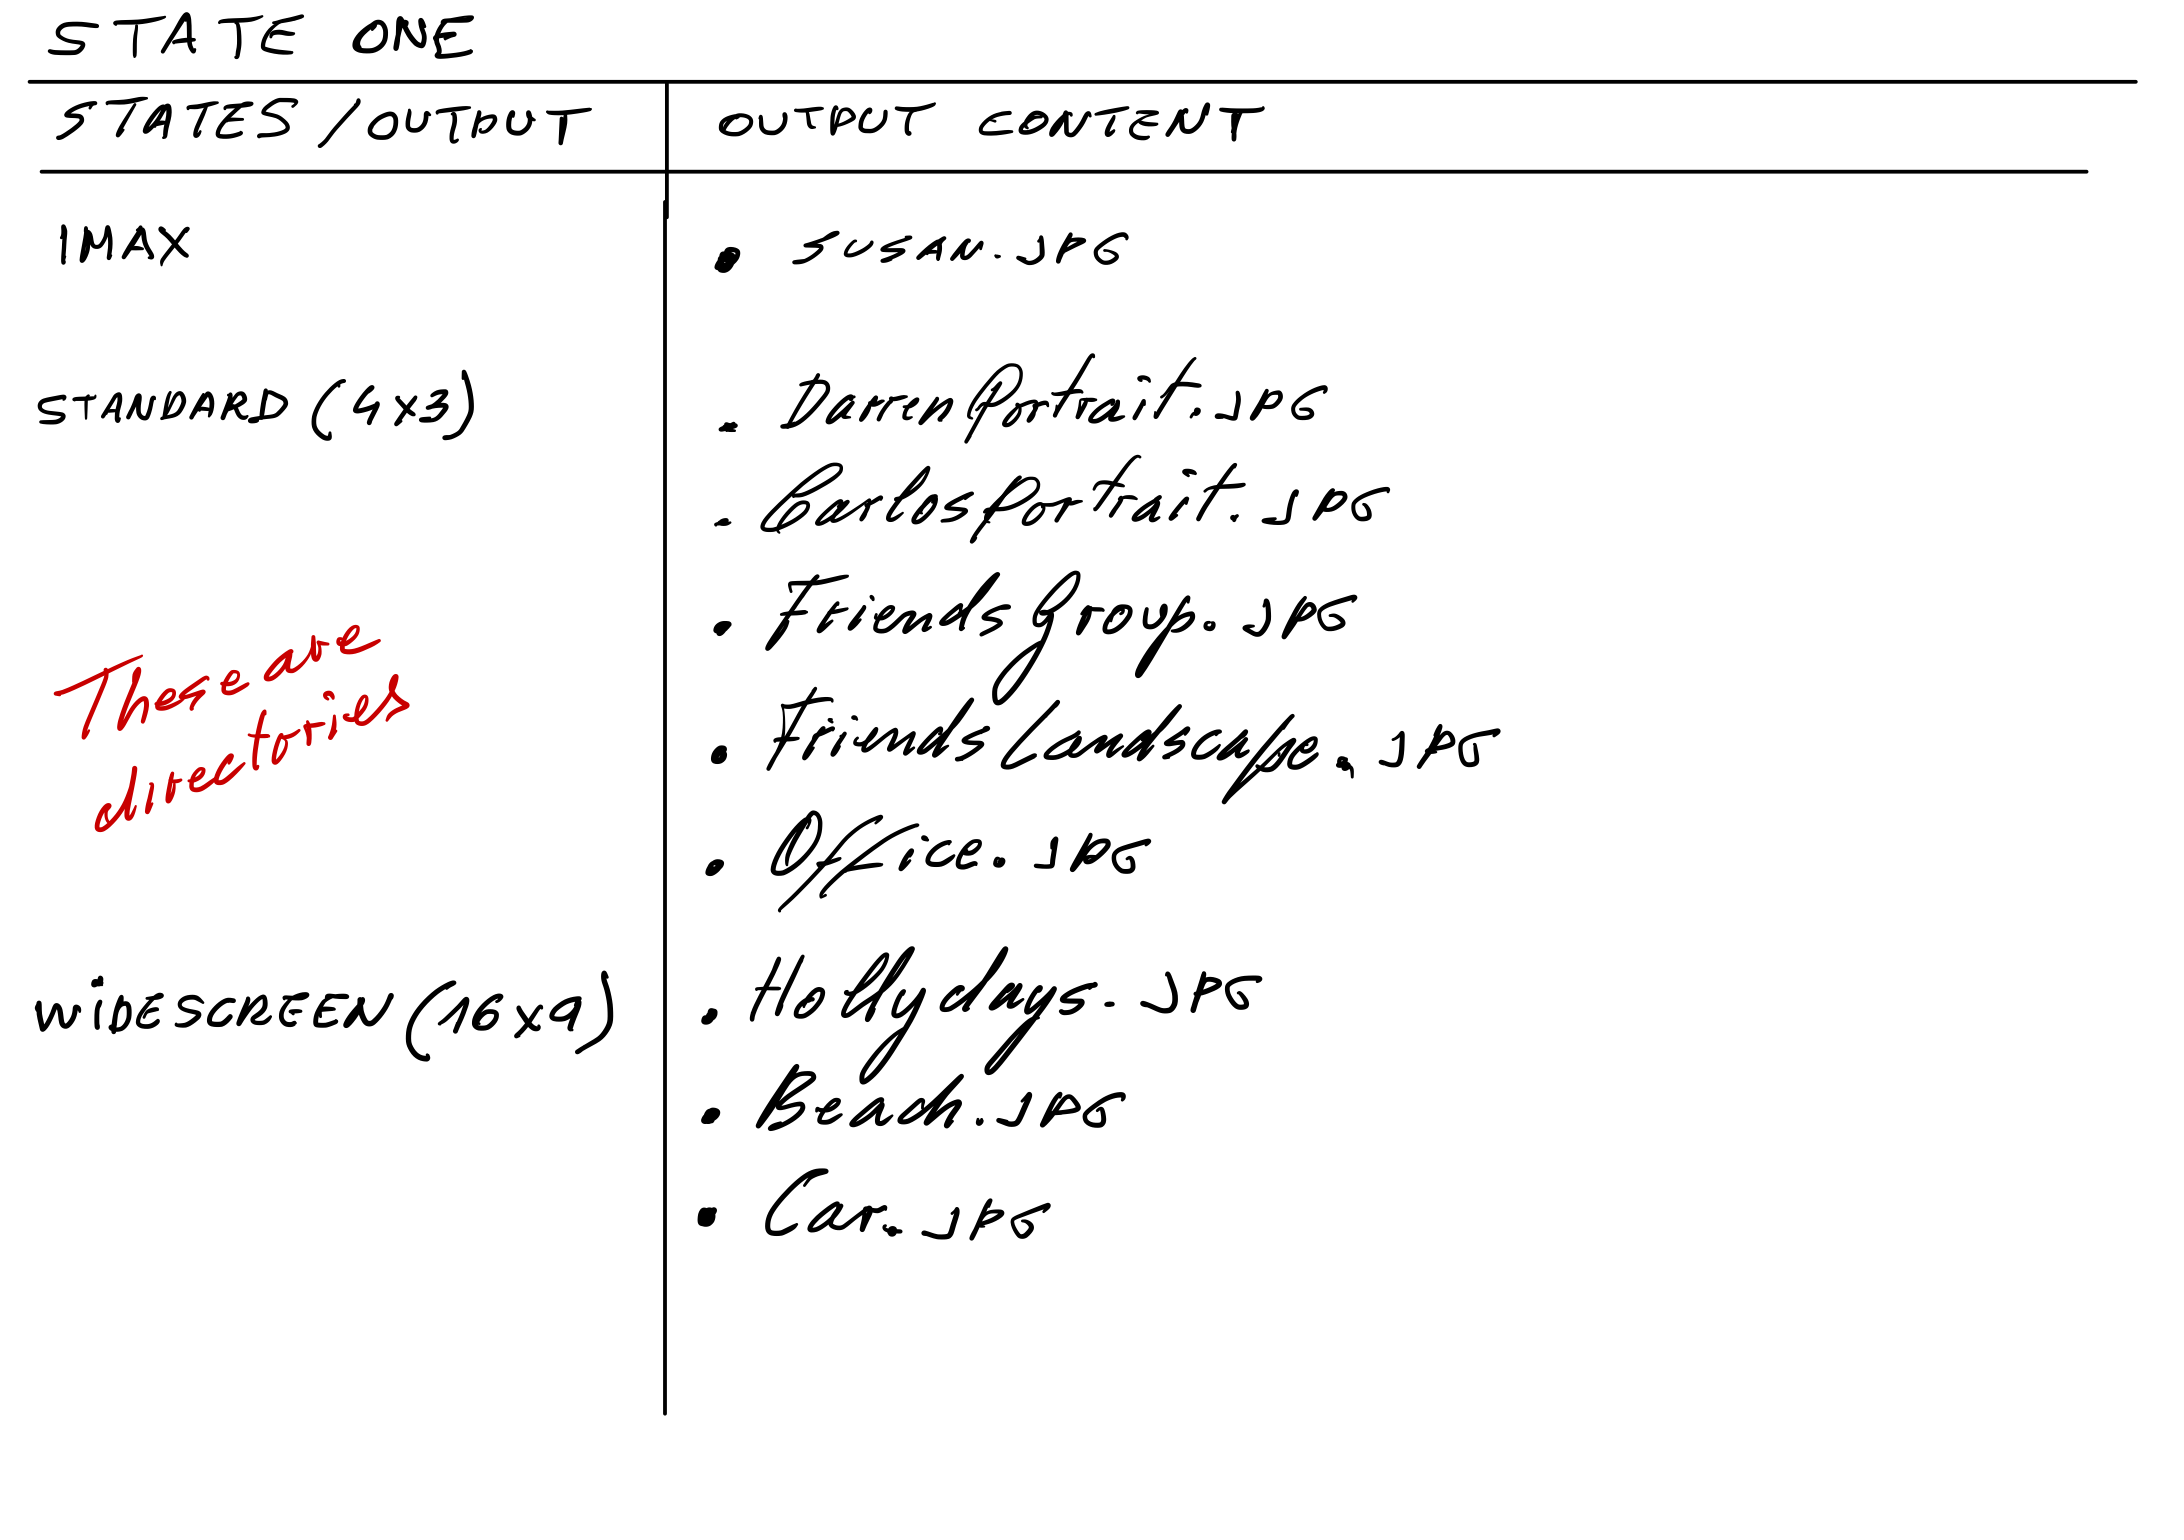 STATE ONE
STATES/OUTPUT OUTPUT CONTENT
IMAX • SUSAN.JPG
STANDARD (4x3) . DarrenPortrait.JPG
. CarlosPortrait.JPG
. FriendsGroup.JPG
These are
directories
. FriendsLandscape.JPG
. Office.JPG
WIDESCREEN (16x9) . Hollydays.JPG
. Beach.JPG
. Car.JPG